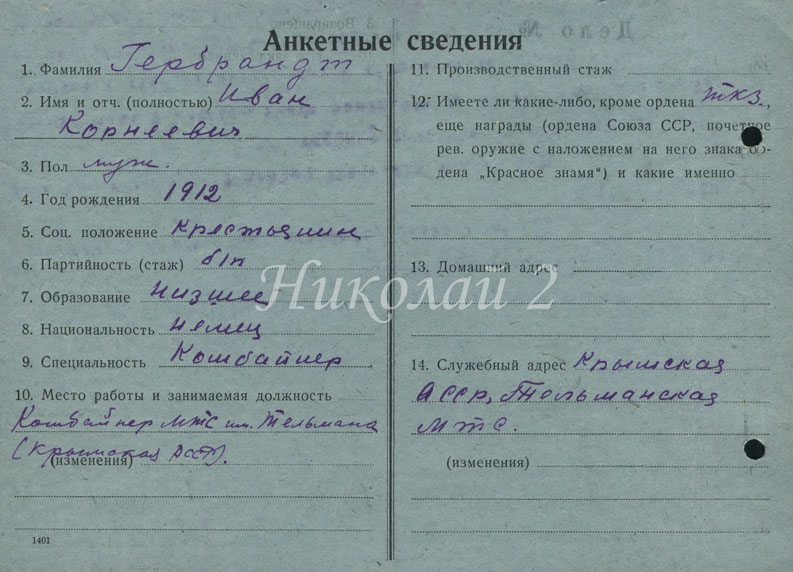 Анкетные сведения
1. Фамилия Гербрандт
2. Имя и отч. (полностью) Иван
Корнеевич
3. Пол муж.
4. Год рождения 1912
5. Соц. положение крестьянин
6. Партийность (стаж) б/п
7. Образование низшее
8. Национальность немец
9. Специальность Комбайнер
10. Место работы и занимаемая должность
Комбайнер МТС им. Тельмана
(Крымская АССР).
(изменения)
1401
11. Производственный стаж
12. Имеете ли какие-либо, кроме ордена ТКЗ,
еще награды (ордена Союза ССР, почетное
рев. оружие с наложением на него знака ор-
дена „Красное знамя“) и какие именно
13. Домашний адрес
14. Служебный адрес Крымская
АССР, Тельманская
МТС.
(изменения)
Николай 2